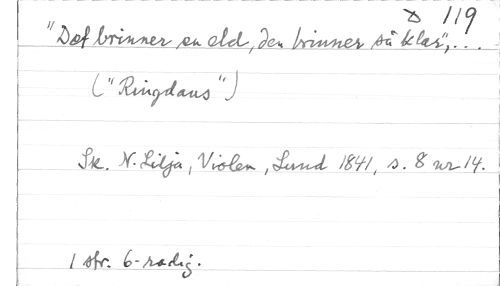 119
"Det brinner en eld, den brinner så klar", ...
("Ringdans")
Sk. N. Lilja, Violen, Lund 1841, s. 8 nr 14.
1 str. 6-radig.